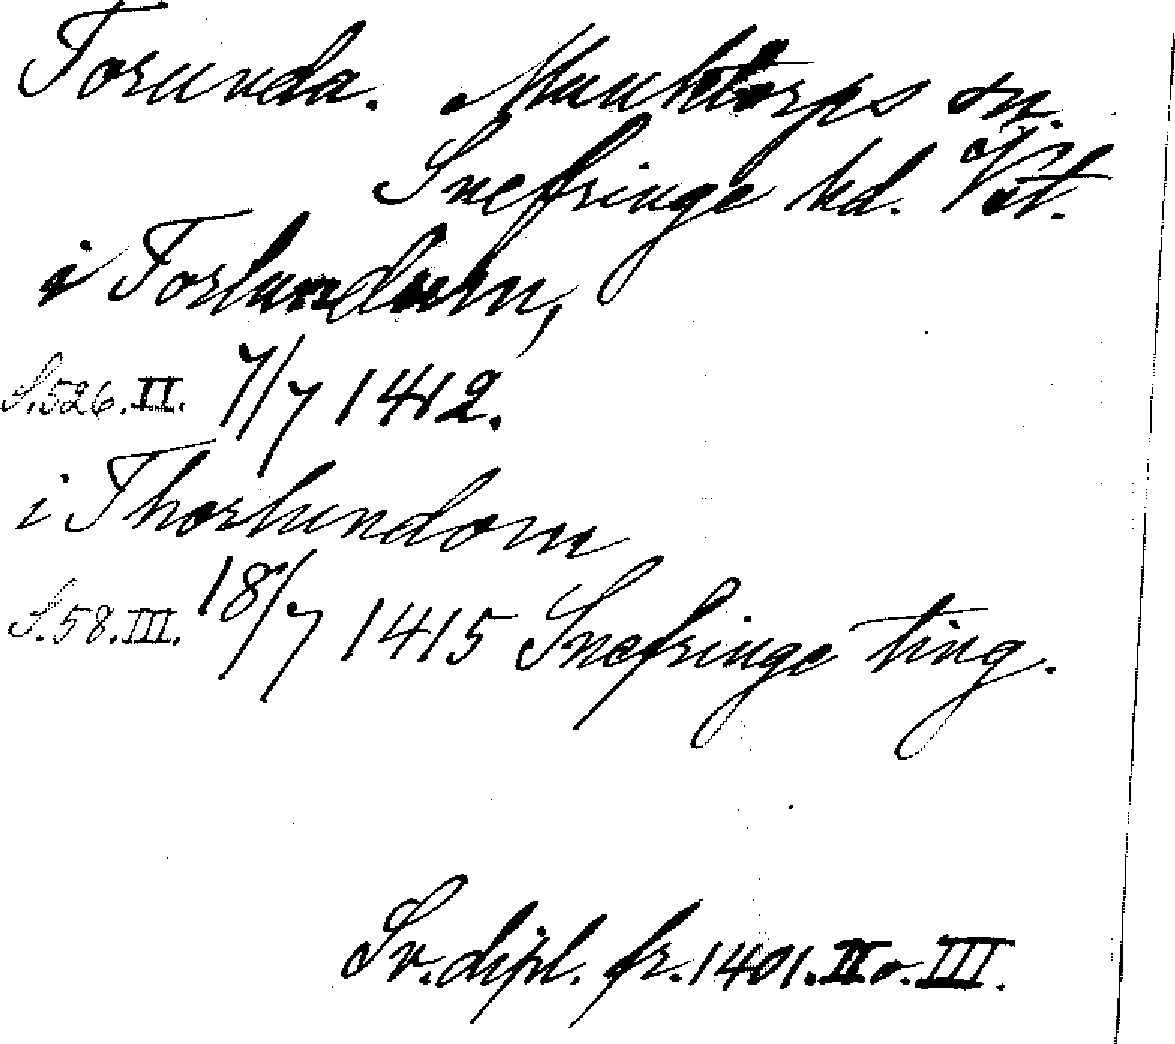 Torunda. Munktorps sn.
Snefringe hd. Vstl.
i Torlundom,
S.526.II. 7/7 1412.
i Thorlundom
S.58.III. 18/7 1415 Snefringe ting.
Sv. dipl. fr. 1401. II o. III.